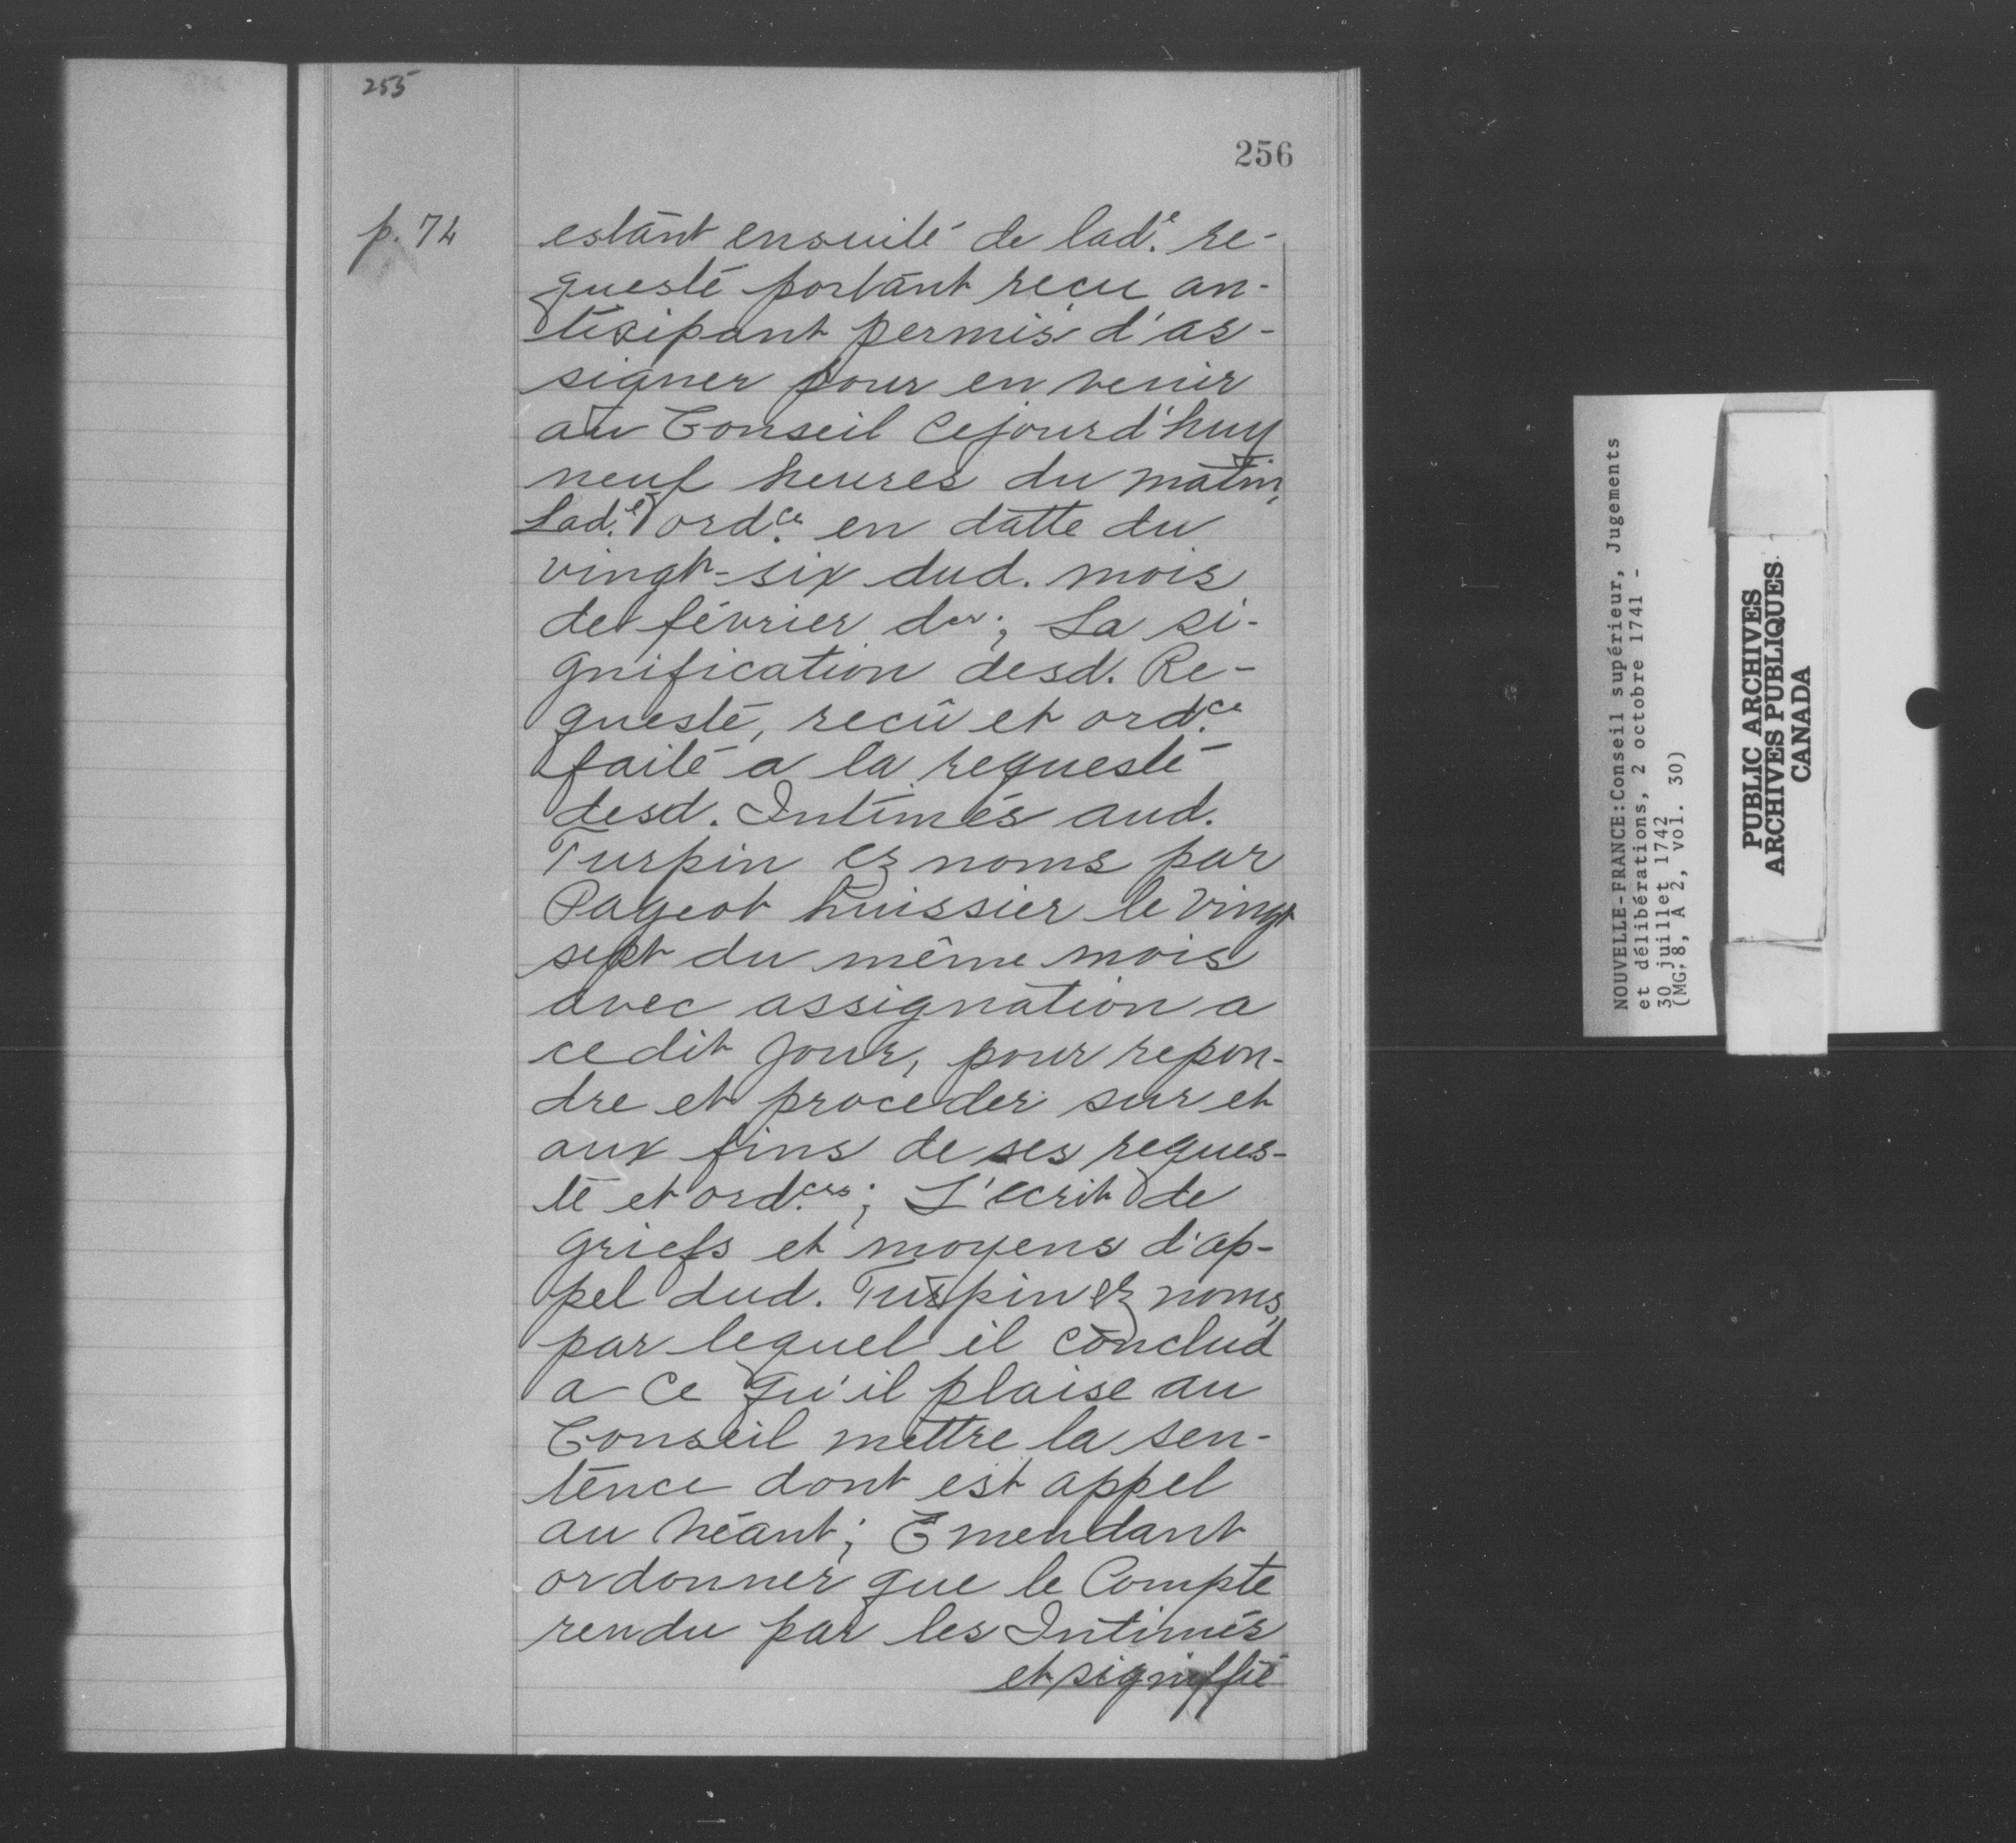 255
256
p. 74
estant ensuite de lad.e re-
queste portant recu an-
ticipant permis d'as-
signer pour en venir
au Conseil Cejourd'huy
neuf heures du matin,
Lad.e ord.ce en datte du
vingt-six dud. mois
de février der; La si-
gnification desd. Re-
queste, recû et ord.ce
faite a la requeste
desd. Intimés aud.
Turpin ez noms par
Pageot huissier le vingt
sept du même mois
avec assignation a
cedit jour, pour repon-
dre et proceder sur et
aux fins de ses reques-
te et ord.ces; L'ecrit de
griefs et moyens d'ap-
pel dud. Turpin ez noms,
par lequel il conclud
a ce qu'il plaise au
Conseil mettre la sen-
tence dont est appel
au néant; Emendant
ordonner que le Compte
rendu par les Intimés
et signiffié
NOUVELLE-FRANCE:Conseil supérieur, Jugements
et délibérations, 2 octobre 1741 -
30 juillet 1742
(MG 8, A 2, vol. 30)
PUBLIC ARCHIVES
ARCHIVES PUBLIQUES
CANADA